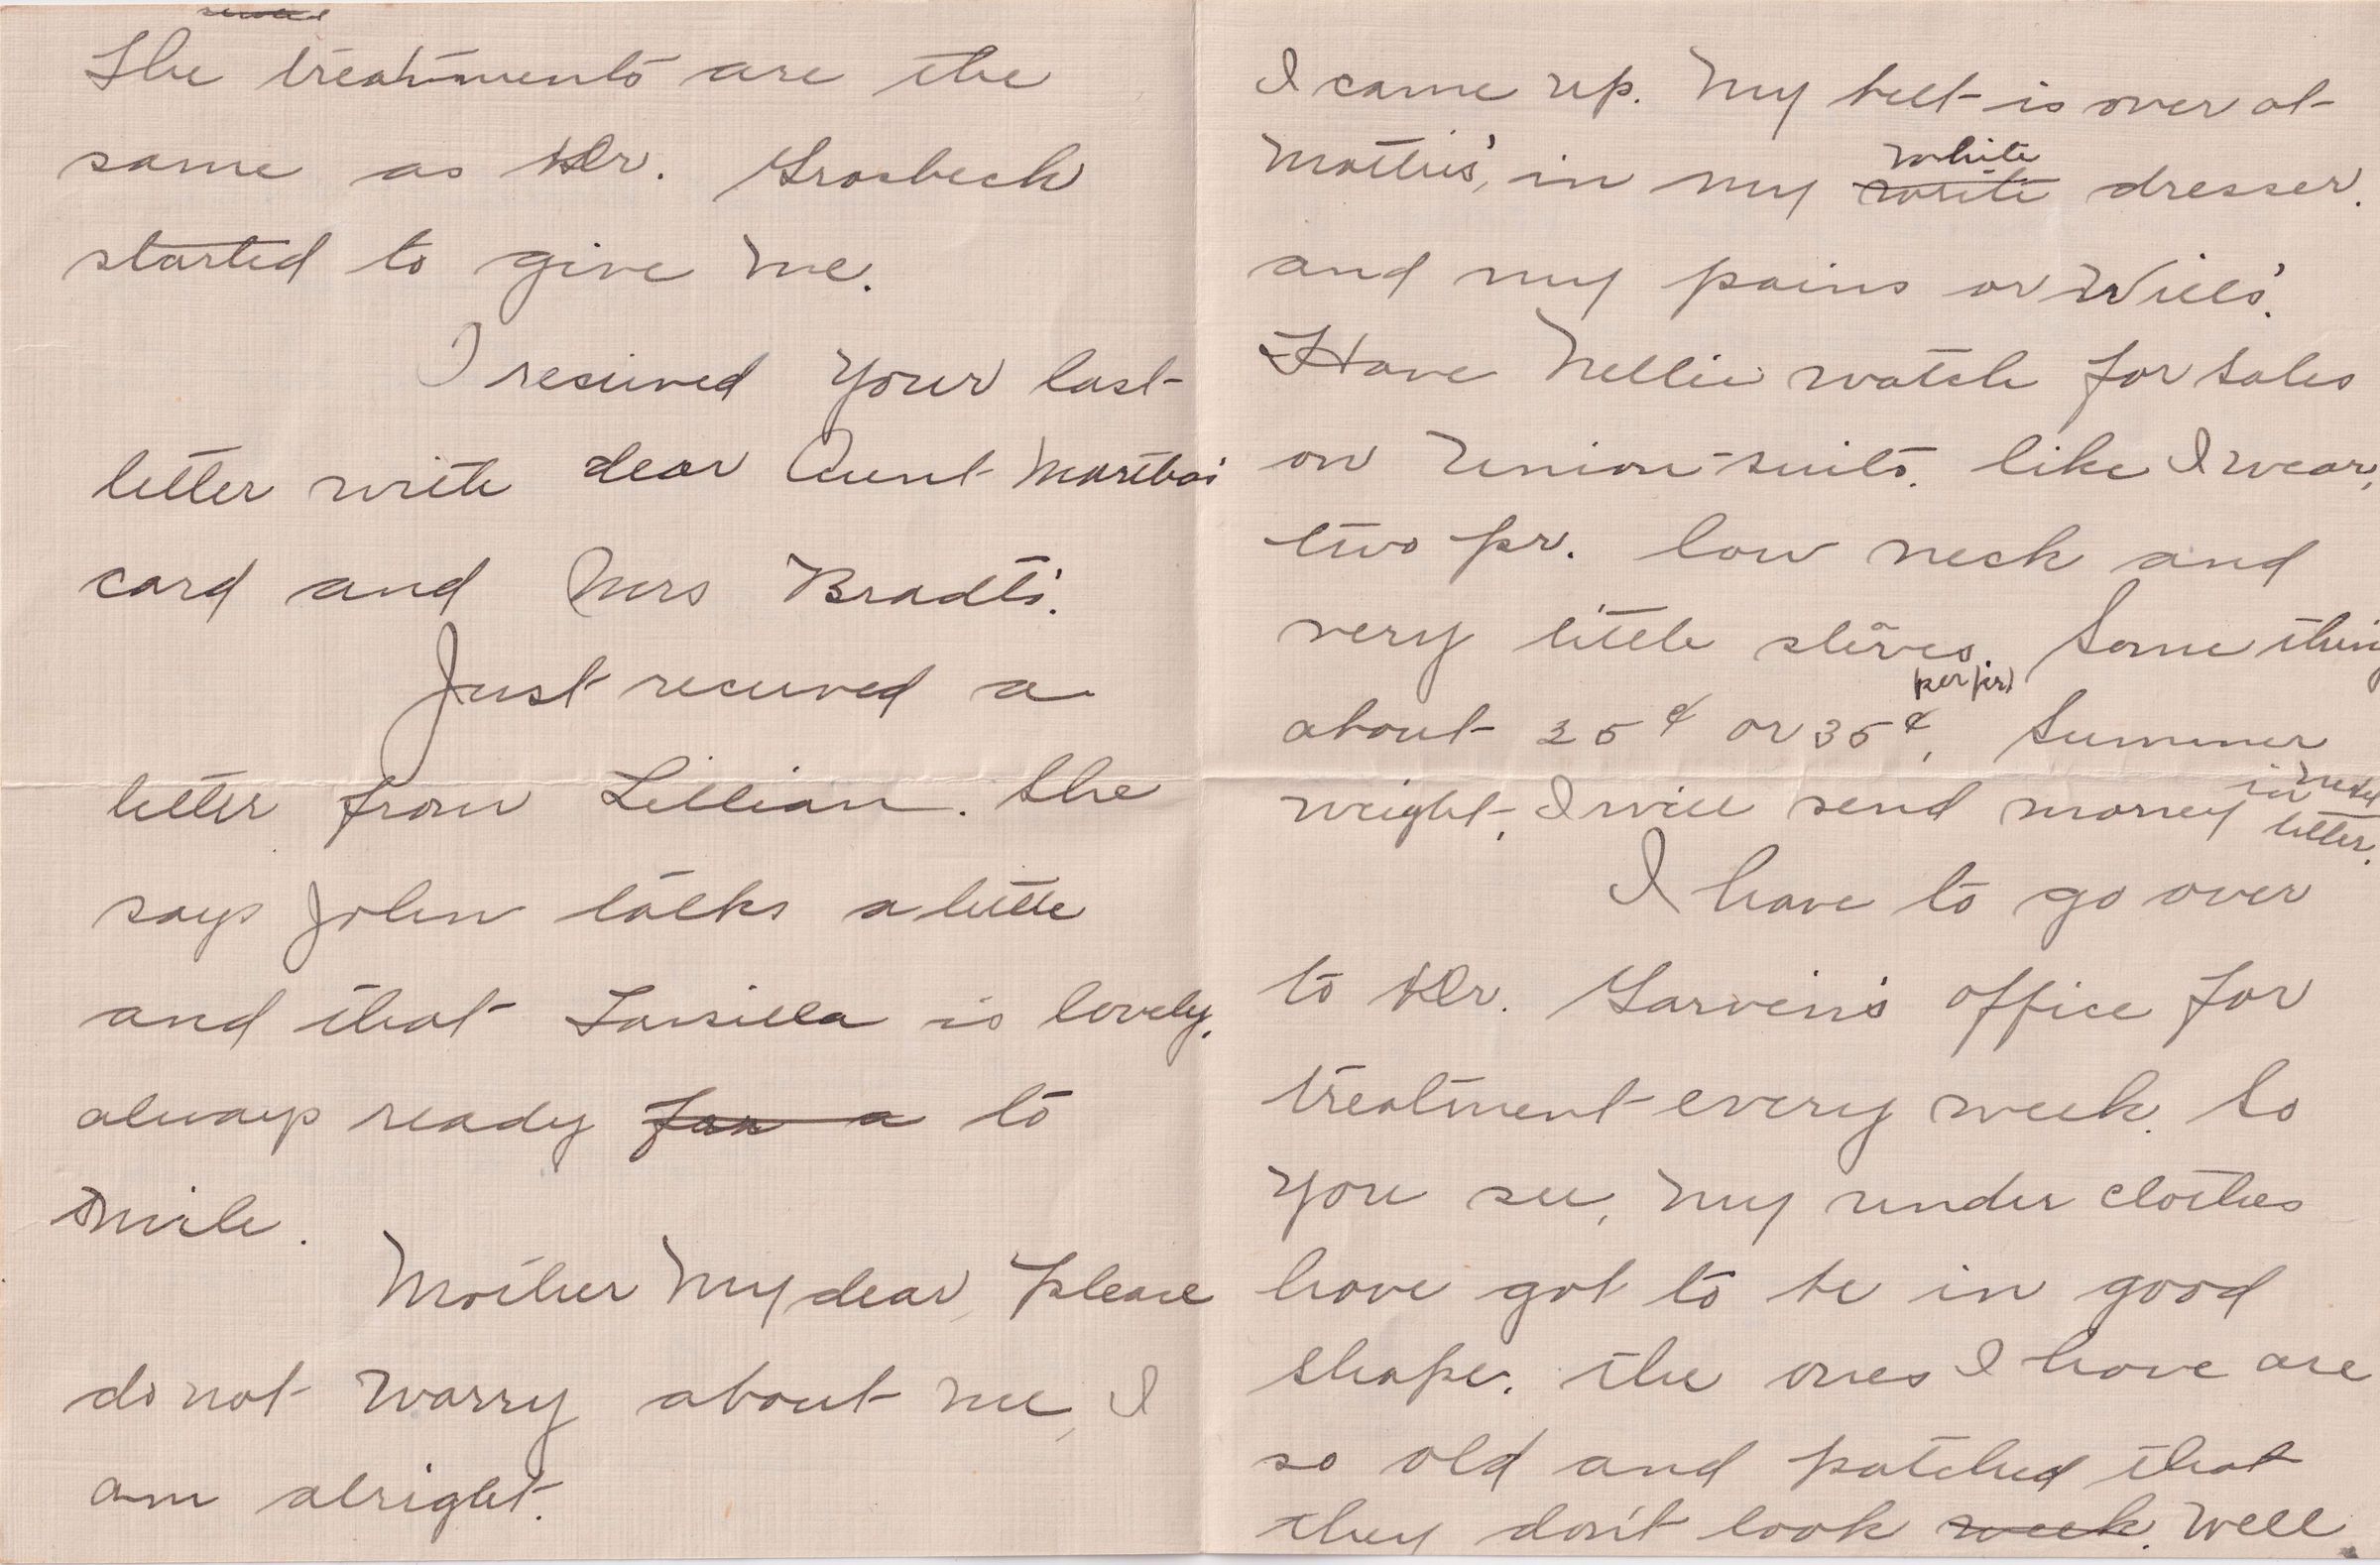 The treatments are the
same as Dr. Grosbeck
started to give me.
I resieved your last
letter write dear Aunt Martha's
card and Mrs Bradt's.
Just recieved a
letter from Lillian. She
says John talks a little
and that is lovely,
always ready for a to
smile.
Mother My dear, please
do not worry about me, I
am alright.
I came up. My belt is over at
Matties', in my write white dresser.
and my pains or Will's'.
Have Nellie watch for sales
on Union-suits. like I wear,
two pr. low neck and
very little sleves. Some thing
about 25¢ or 35¢ (per pr), Summer
weight, I will send money in next letter.
I have to go over
to Dr. Garvin's office for
treatment every week. So
you see, my under clothes
have got to be in good
shape. the ones I have are
so old and patched that
they don't look week. well